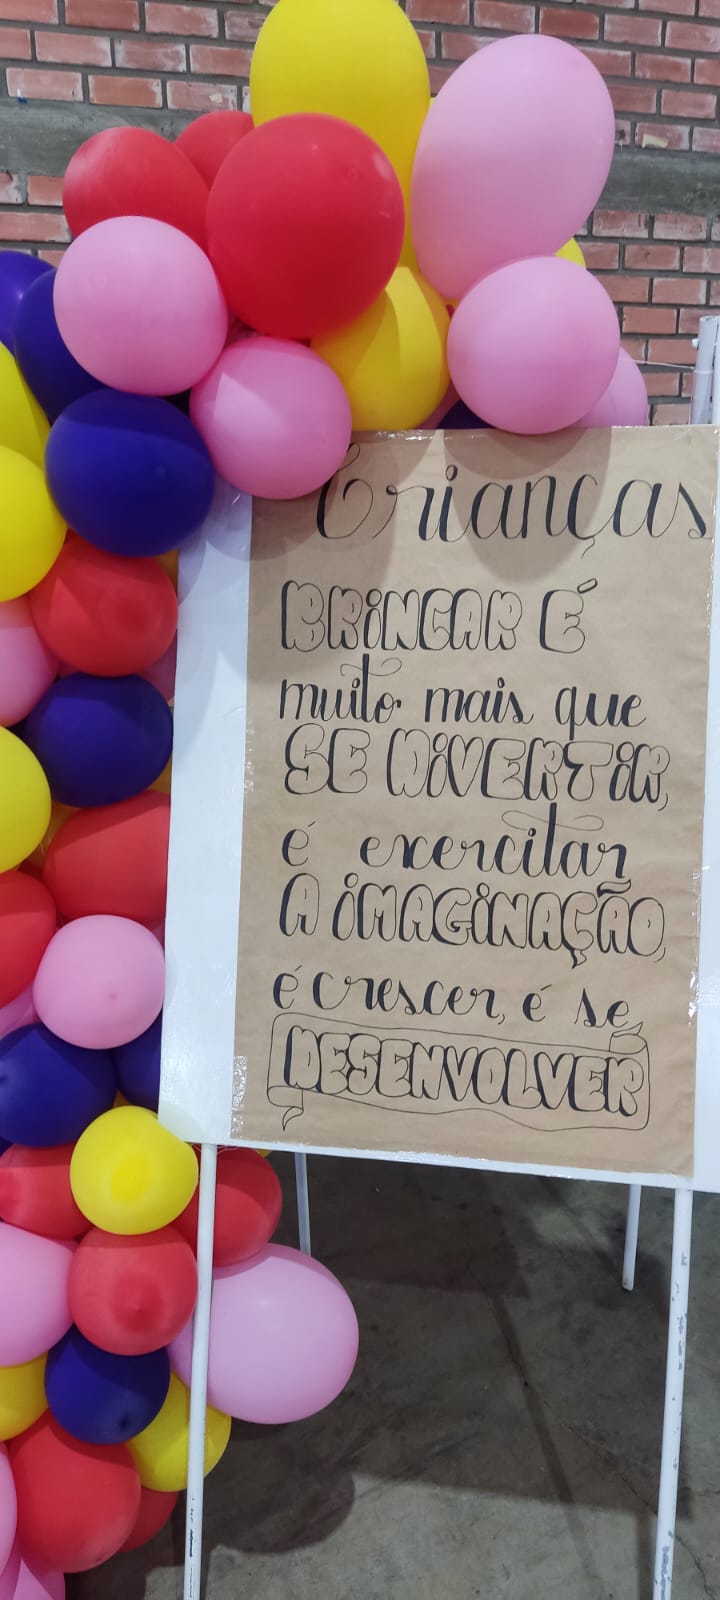 Crianças
BRINCAR É
muito mais que
SE DIVERTIR,
é exercitar
A IMAGINAÇÃO,
é crescer, é se
DESENVOLVER